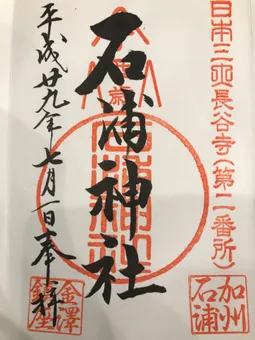 日本三所長谷寺(第二番所)
加州
石浦
石浦神社
平成廿九年七月一日奉拝
金澤
鎮座